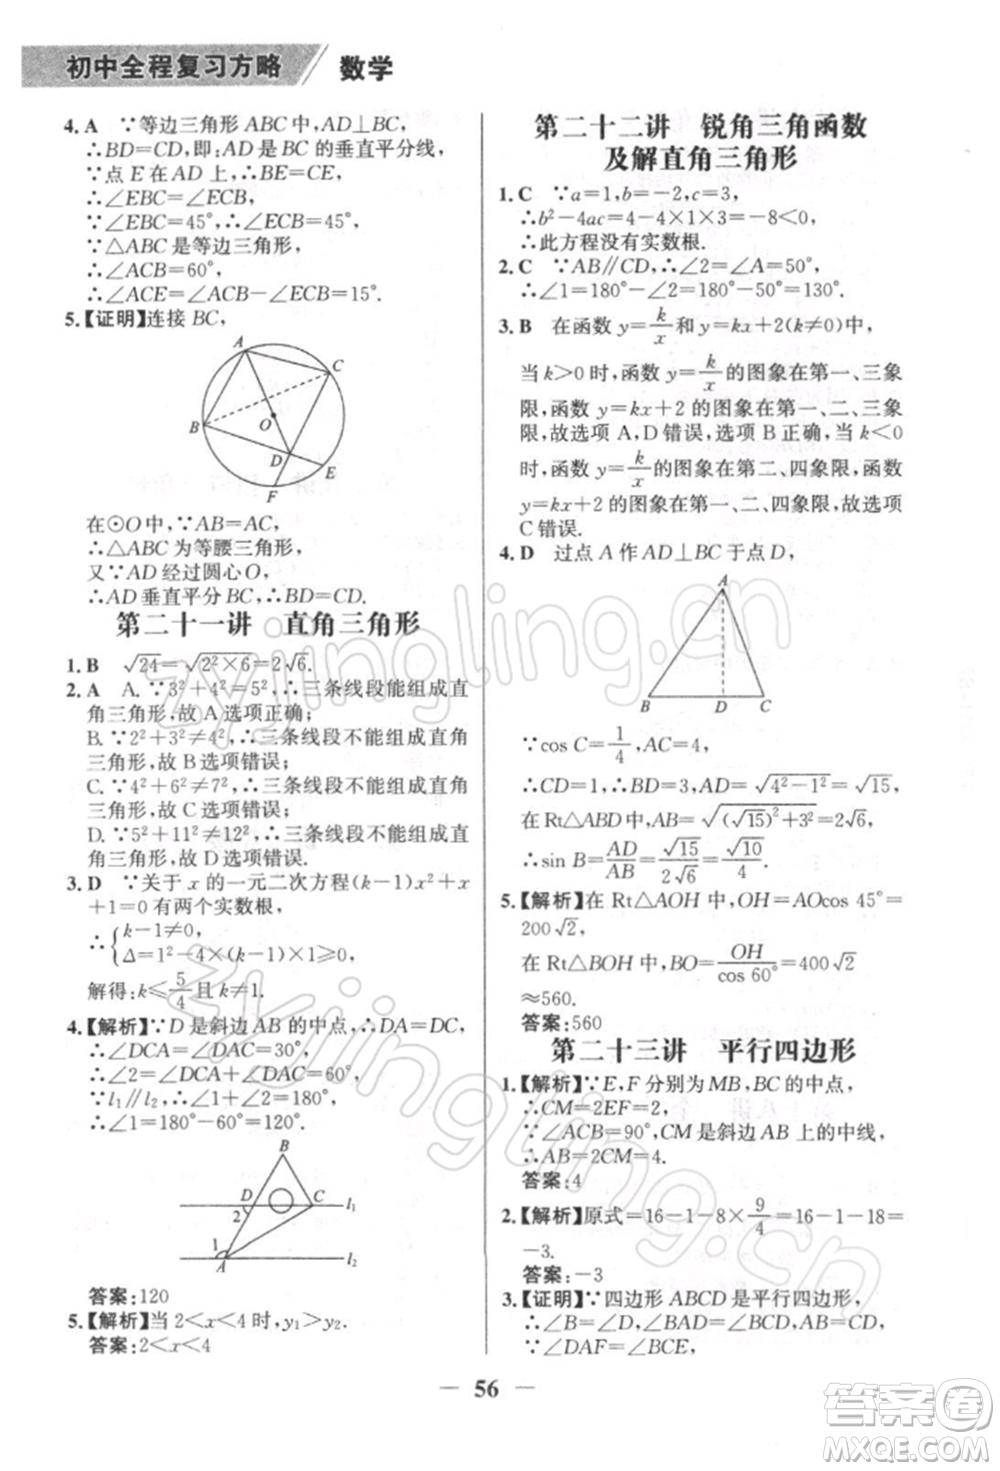 初中全程复习方略 数学
4. A ∵等边三角形 ABC 中,AD⊥BC,
∴BD=CD,即:AD 是 BC 的垂直平分线,
∵点 E 在 AD 上,∴BE=CE,
∴∠EBC=∠ECB,
∵∠EBC=45°,∴∠ECB=45°,
∵△ABC 是等边三角形,
∴∠ACB=60°,
∴∠ACE=∠ACB-∠ECB=15°.
5.【证明】连接 BC,
A
C
B
O
D
E
F
在⊙O 中,∵AB=AC,
∴△ABC 为等腰三角形,
又∵AD 经过圆心 O,
∴AD 垂直平分 BC,∴BD=CD.
第二十一讲 直角三角形
1. B √24=√(2²×6)=2√6.
2. A A.∵3²+4²=5²,∴三条线段能组成直
角三角形,故 A 选项正确;
B.∵2²+3²≠4²,∴三条线段不能组成直角
三角形,故 B 选项错误;
C.∵4²+6²≠7²,∴三条线段不能组成直角
三角形,故 C 选项错误;
D.∵5²+11²≠12²,∴三条线段不能组成直
角三角形,故 D 选项错误.
3. D ∵关于 x 的一元二次方程(k-1)x²+x
+1=0 有两个实数根,
∴{k-1≠0,
Δ=1²-4×(k-1)×1≥0,
解得:k≤5/4且 k≠1.
4.【解析】∵D 是斜边 AB 的中点,∴DA=DC,
∴∠DCA=∠DAC=30°,
∴∠2=∠DCA+∠DAC=60°,
∵l₁∥l₂,∴∠1+∠2=180°,
∴∠1=180°-60°=120°.
B
D
C
l₁
2
1
A
l₂
答案:120
5.【解析】当 2<x<4 时,y₁>y₂.
答案:2<x<4
第二十二讲 锐角三角函数
及解直角三角形
1. C ∵a=1,b=-2,c=3,
∴b²-4ac=4-4×1×3=-8<0,
∴此方程没有实数根.
2. C ∵AB∥CD,∴∠2=∠A=50°,
∴∠1=180°-∠2=180°-50°=130°.
3. B 在函数 y=k/x和 y=kx+2(k≠0)中,
当 k>0 时,函数 y=k/x的图象在第一、三象
限,函数 y=kx+2 的图象在第一、二、三象
限,故选项 A,D 错误,选项 B 正确,当 k<0
时,函数 y=k/x的图象在第二、四象限,函数
y=kx+2 的图象在第一、二、四象限,故选项
C 错误.
4. D 过点 A 作 AD⊥BC 于点 D,
A
B
D
C
∵cos C=1/4,AC=4,
∴CD=1,∴BD=3,AD=√(4²-1²)=√15,
在 Rt△ABD 中,AB=√((√15)²+3²)=2√6,
∴sin B=AD/AB=√15/2√6=√10/4.
5.【解析】在 Rt△AOH 中,OH=AOcos 45°=
200√2,
在 Rt△BOH 中,BO=OH/cos 60°=400√2
≈560.
答案:560
第二十三讲 平行四边形
1.【解析】∵E,F 分别为 MB,BC 的中点,
∴CM=2EF=2,
∵∠ACB=90°,CM 是斜边 AB 上的中线,
∴AB=2CM=4.
答案:4
2.【解析】原式=16-1-8×9/4=16-1-18=
-3.
答案:-3
3.【证明】∵四边形 ABCD 是平行四边形,
∴∠B=∠D,AB=CD,
∵∠DAF=∠BCE,
— 56 —
zyjingling.cn
zyjingling.cn
答案圈
MXQE.COM